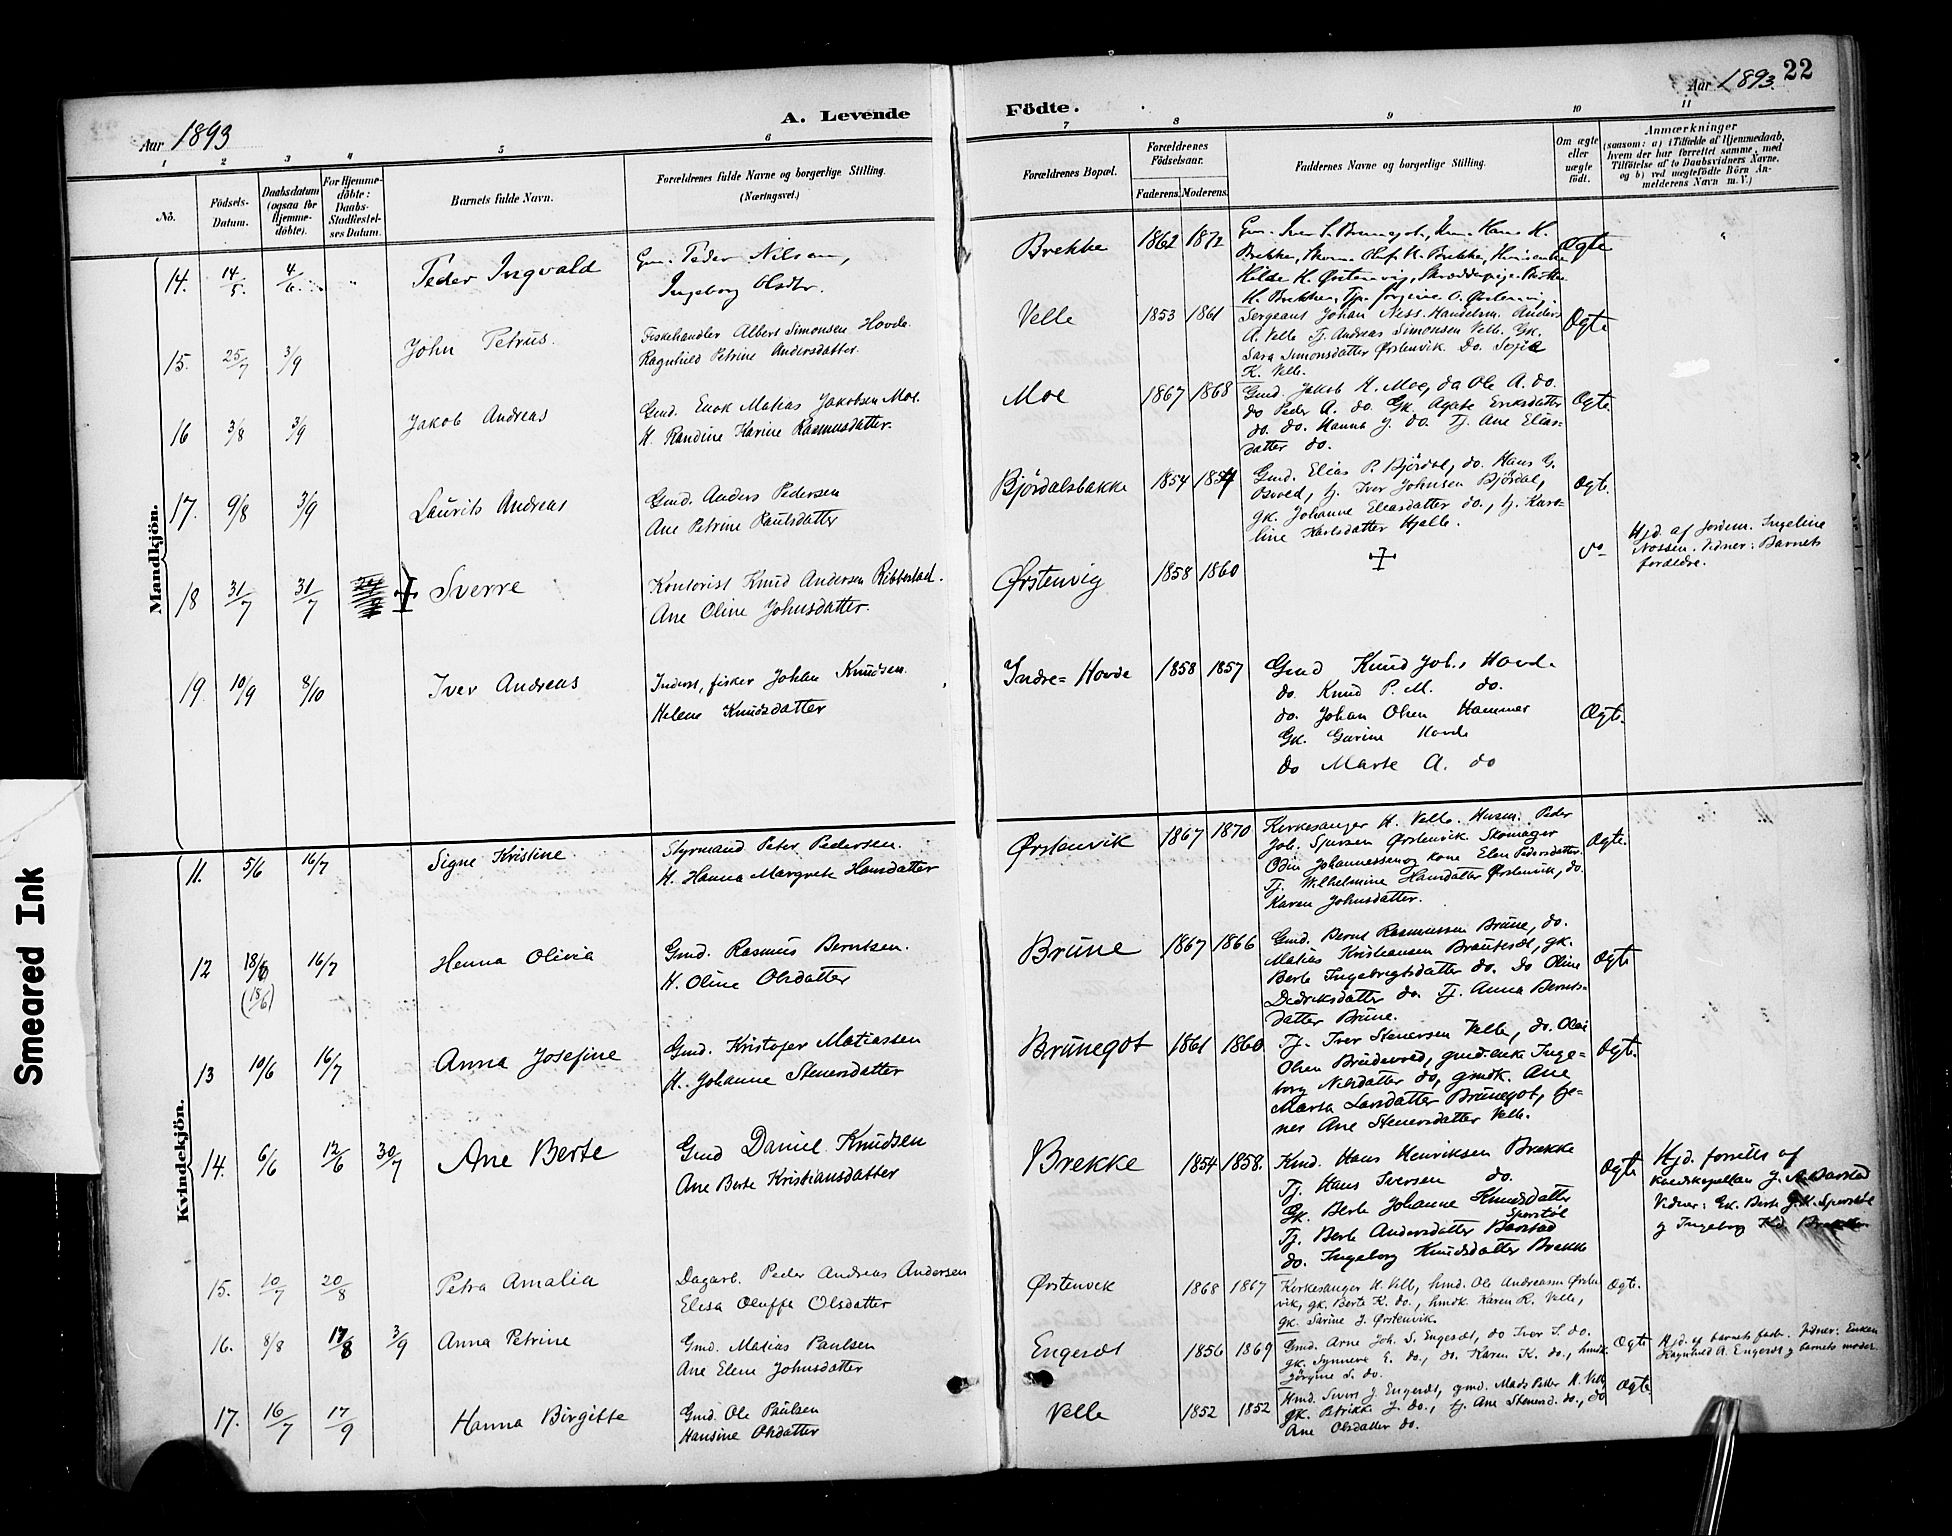 22
Aar 1893
A. Levende
Födte.
Aar 1893.
1 2 3 4 5 6 7 8 9 10 11
No.
Födsels-Datum.
Daabsdatum (ogsaa for Hjemme-döbte).
For Hjemme-döbte: Daabs-Stadfæstel-ses Datum.
Barnets fulde Navn.
Forældrenes fulde Navne og borgerlige Stilling.
(Næringsvei.)
Forældrenes Bopæl.
Forældrenes Födselsaar.
Faderens. Moderens.
Faddernes Navne og borgerlige Stilling.
Om ægte eller uægte födt.
Anmærkninger
(saasom: a) i Tilfælde af Hjemmedaab, hvem der har forrettet samme, med Tilföielse af to Daabsvidners Navne. og b) ved uægtefödte Börn An-melderens Navn m. V.)
Mandkjön.
14. 14/5. 4/6. " Peder Ingvald
Gm. Peder Nilsen,
Ingeborg Olsdtr.
Brekke 1862 1872
Ægte
15. 25/7 3/9 John Petrus.
Fiskehandler Albert Simonsen Hovde
Ragnhild Petrine Andersdatter.
Velle 1853 1861
Sergeant Johan Ness. Handelsm. Anders
A. Velle Tj. Andreas Simonsen Velle. Gk.
Sara Simonsdatter Ørstenvik. Do. Sofie
K. Velle.
Ægte
16 3/8 3/9 Jakob Andreas
Gmd. Enok Matias Jakobsen Moe.
H. Randine Karine Rasmusdatter.
Moe 1867 1868
Gmd. Jakob H. Moe, do Ole A. do.
do Peder A. do. Gk. Agate Eriksdatter
do. do. Hanna J. do. Tj. Ane Elias-
datter do.
Ægte.
17. 9/8 3/9 Laurits Andreas
Gmd. Anders Pedersen
Ane Petrine Paulsdatter
Björdalsbakke 1854 1854
Gmd. Elias P. Björdal, do. Hans G.
Osvold, tj. Iver Johnsen Björdal,
gk. Johanne Eliasdatter do., tj. Karo-
line Karlsdatter Hjelle.
Ægte.
18 31/7 31/7 Sverre
Kontorist Knud Andersen Ribbestad.
Ane Oline Johnsdatter.
Ørstenvig 1858 1860
do
Hjd. af Jordem. Ingeline
Nossen. Vidner: Barnets
foraldre.
19. 10/9 8/10 Iver Andreas
Inderst, fisker Johan Knudsen.
Helene Knudsdatter
Indre=Hovde 1858 1857
Gmd Knud Joh. Hovd.
do. Knud P. M. do.
do. Johan Olsen Hammer
Gk. Gurine Hovde
do Marte A. do
Ægte.
Kvindekjön.
11. 5/6 16/7 Signe Kristine.
Styrmand Peter Pedersen.
H. Hanna Margrete Hansdatter
Ørstenvik 1867 1870
Kirkesanger H. Velle. Husm. Peder
Joh. Iversen Ørstenvik Skomager
Odin Johannessen og kone Elen Pedersdatter.
Tj. Wilhelmine Hansdatter Ørstenvik, do.
Karen Johnsdatter.
Ægte.
12 18/6 (15/6) 16/7 Henna Olivia
Gmd. Rasmus Berntsen.
H. Oline Olsdatter
Brune 1867 1866
Gmd. Bernt Rasmussen Brune, do.
Matias Kristiansen Brautesæt, gk.
Berte Ingebrigtsdatter do. do Oline
Dedriksdatter do Tj. Anna Bernts-
datter Brune.
Ægte
13 10/6 16/7 Anna Josefine
Gmd. Kristofer Matiassen
H. Johanne Stenersdatter
Brunegot 1861 1860
Tj. Iver Stenersen Velle, do. Olai
Olsen Brudevold, gmd.enke Inge-
borg Nilsdatter do, gmdk. Ane
Marta Larsdatter Brunegot, tje-
nes Ane Stenersdatter Velle.
Ægt.
14. 6/6 12/6 30/7 Ane Berte
Gmd Daniel Knudsen
Ane Berte Kristiansdatter
Brekke 1854 1858.
Kmd. Hans Henriksen Brekke
Tj. Hans Iversen do.
Gk. Berte Johanne Knudsdatter
Sperstöl
Tj. Berte Andersdatter Barstad
do. Ingeborg Knudsdatter Brekke
Ægte
Hjd. forretts af
Vidner: Gk. Berte J. K. Sperstöl
og Ingeborg Kd. Brekke
15. 10/7 20/8 Petra Amalia
Dagarb. Peder Andreas Andersen
Elisa Oluffa Olsdatter
Ørstenvik 1868 1867
Kirkesanger H. Velle, hmd. Ole Andreassen Ørsten-
vik, gk. Berte K. do., hmdk. Karen R. Velle,
gk. Sarine J. Ørstenvik.
Ægt.
16. 8/8 17/8 3/9 Anna Petrine
Gmd. Matias Paulsen
Ane Elene Johnsdatter
Engeset 1856 1869
Gmd. Arne Joh. S. Engeset, do Iver S. do.
gk. Synneve E. do., do. Karen K. do., hmdk.
Jörgine S. do.
Ægte
Hjd. af barnets fader. Vidner: Enken
Ragnhild A. Engeset og barnets moder.
17. 16/7 17/9 Hanna Birgitte
Gmd. Ole Paulsen
Hansine Olsdatter
Velle 1852 1852
Hmd. Sivert J. Engeset, gmd. Mads Petter H. Velle
gk. Petrikke J. do., tj. Ane Stenersd. do., do
Ane Olsdatter do.
Ægte.
Smeared Ink